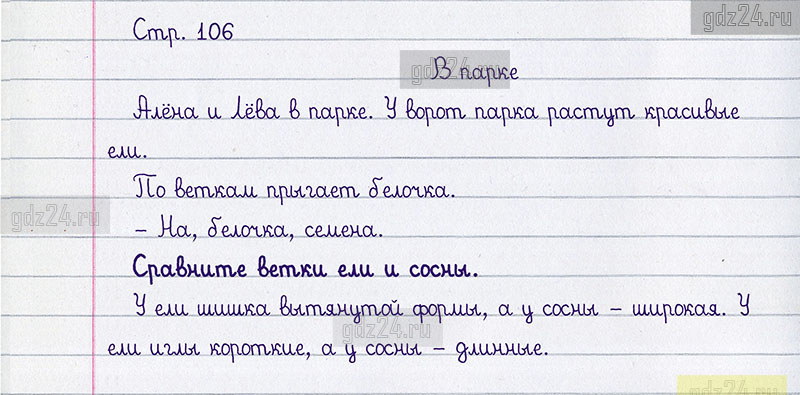 gdz24.ru
Стр. 106
gdz24.ru
В парке
Алёна и Лёва в парке. У ворот парка растут красивые
ели.
По веткам прыгает белочка.
gdz24.ru
– На, белочка, семена.
Сравните ветки ели и сосны.
У ели шишка вытянутой формы, а у сосны – широкая. У
gdz24.ru
ели иглы короткие, а у сосны – длинные.
gdz24.ru